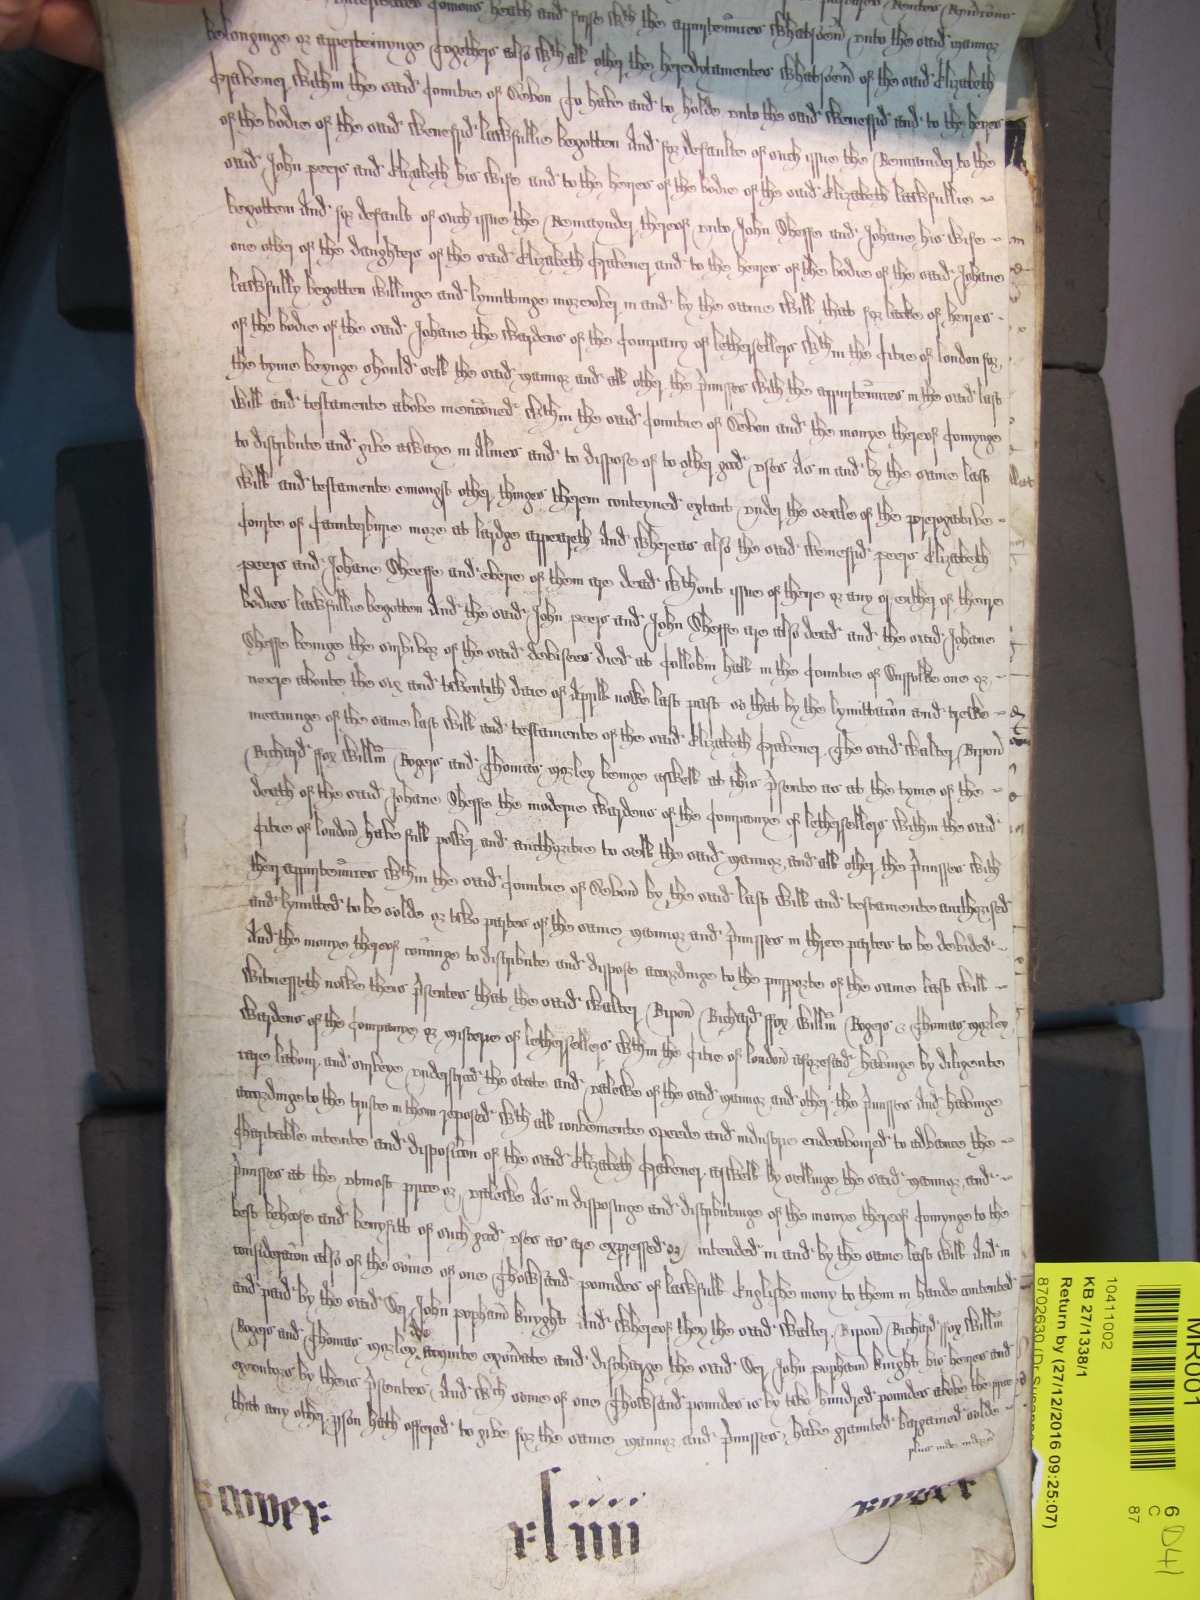 comons heath and furse wth the appurtennces whatsoeu vnto the said mannor
belonginge or apperteinynge Togethers also wth all other the heredytamentes whatsoeu of the said Elizabeth
within the said Countie of Devon To have and to holde vnto the said and to the heres
of the bodie of the said lawfullie begotten And for defaulte of such issue the Remainder to the
said John peers and Elizabeth his wife and to the heres of the bodie of the said Elizabeth lawfullie
begotten And for default of such issue the Remaynder thereof vnto John Sheffe and Johane his wife
one other of the daughters of the said Elizabeth and to the heres of the bodie of the said Johane
lawfully begotten willinge and lymittinge moreover in and by the same will that for lacke of heires
of the bodie of the said Johane the wardens of the Company of lethersellers wthin the Citie of london for
the tyme beynge should sell the said mannor and all other the pmisses with the appurtennces in the said last
will and testamente above menconed wthin the said Countie of Devon and the monye thereof comynge
to distribute and give awaye in Almes and to dispose of to other good vses As in and by the same last
will and testamente emongst other thinges therein conteyned extant vnder the seale of the prerogative
Courte of Caunterburie more at lardge appeareth And whereas also the said peers Elizabeth
peers and Johane Sheeffe and everie of them are dead wthout issue of theire or any or either of theire
bodies lawfullie begotten And the said John peers and John Sheffe are also dead and the said Johane
Sheffe beinge the survivor of the said devisees died at hall in the Countie of Suffolke one or
nere aboute the six and twentith daie of Aprill nowe last past so that by the lymittacon and trewe
meaninge of the same last will and testamente of the said Elizabeth The said walter Ripon
Richard ffox willm Rogers and Thomas morley beinge aswell at this psente as at the tyme of the
death of the said Johane Sheffe the moderne wardens of the Companye of lethersellers within the said
Citie of london have full power and authoritie to sell the said mannor and all other the pmisses with
ther appurtennces wthin the said Countie of Devon by the said last will and testamente authorised
and lymitted to be solde or two partes of the same mannor and pmisses in three partes to be devided
And the monye thereof cominge to distribute and dispose accordinge to the purporte of the same last will
witnesseth nowe theis psentes that the said walter Ripon Richard ffox willm Rogers & Thomas morley
wardens of the Companye or misterie of lethersellers wthin the Citie of london aforesaid havinge by diligente
care labour and surveye vnderstood the state and valewe of the said mannor and other the pmisses And havinge
accordinge to the truste in them reposed wth all convenient speede and industrie endeavoured to advance the
Charitable intente and disposicon of the said Elizabeth aswell by sellinge the said mannor and
pmisses at the vtmost price or valewe As in disposinge and distributinge of the monye thereof comynge to the
best behoofe and benyfitt of such good vses as are expressed or intended in and by the same last will And in
consideracon also of the some of one Thowsand poundes of lawfull Englishe mony to them in hande contented
and paid by the said Ser John popham knyght And whereof they the said walter Ripon Richard ffox willm
Rogers and Thomas morley doe acquite exonate and discharge the said Ser John popham knight his heires and
executors by theis psentes And wth some of one Thowsand poundes is by two hundred poundes above the price
that any other pson hath offered to give for the same mannor and pmisses have graunted bargained solde
plus inde
Roper
rl iiii
Roper
MR001
10411002
KB 27/1338/1
Return by (27/12/2016 09:25:07)
6
C
87
D41